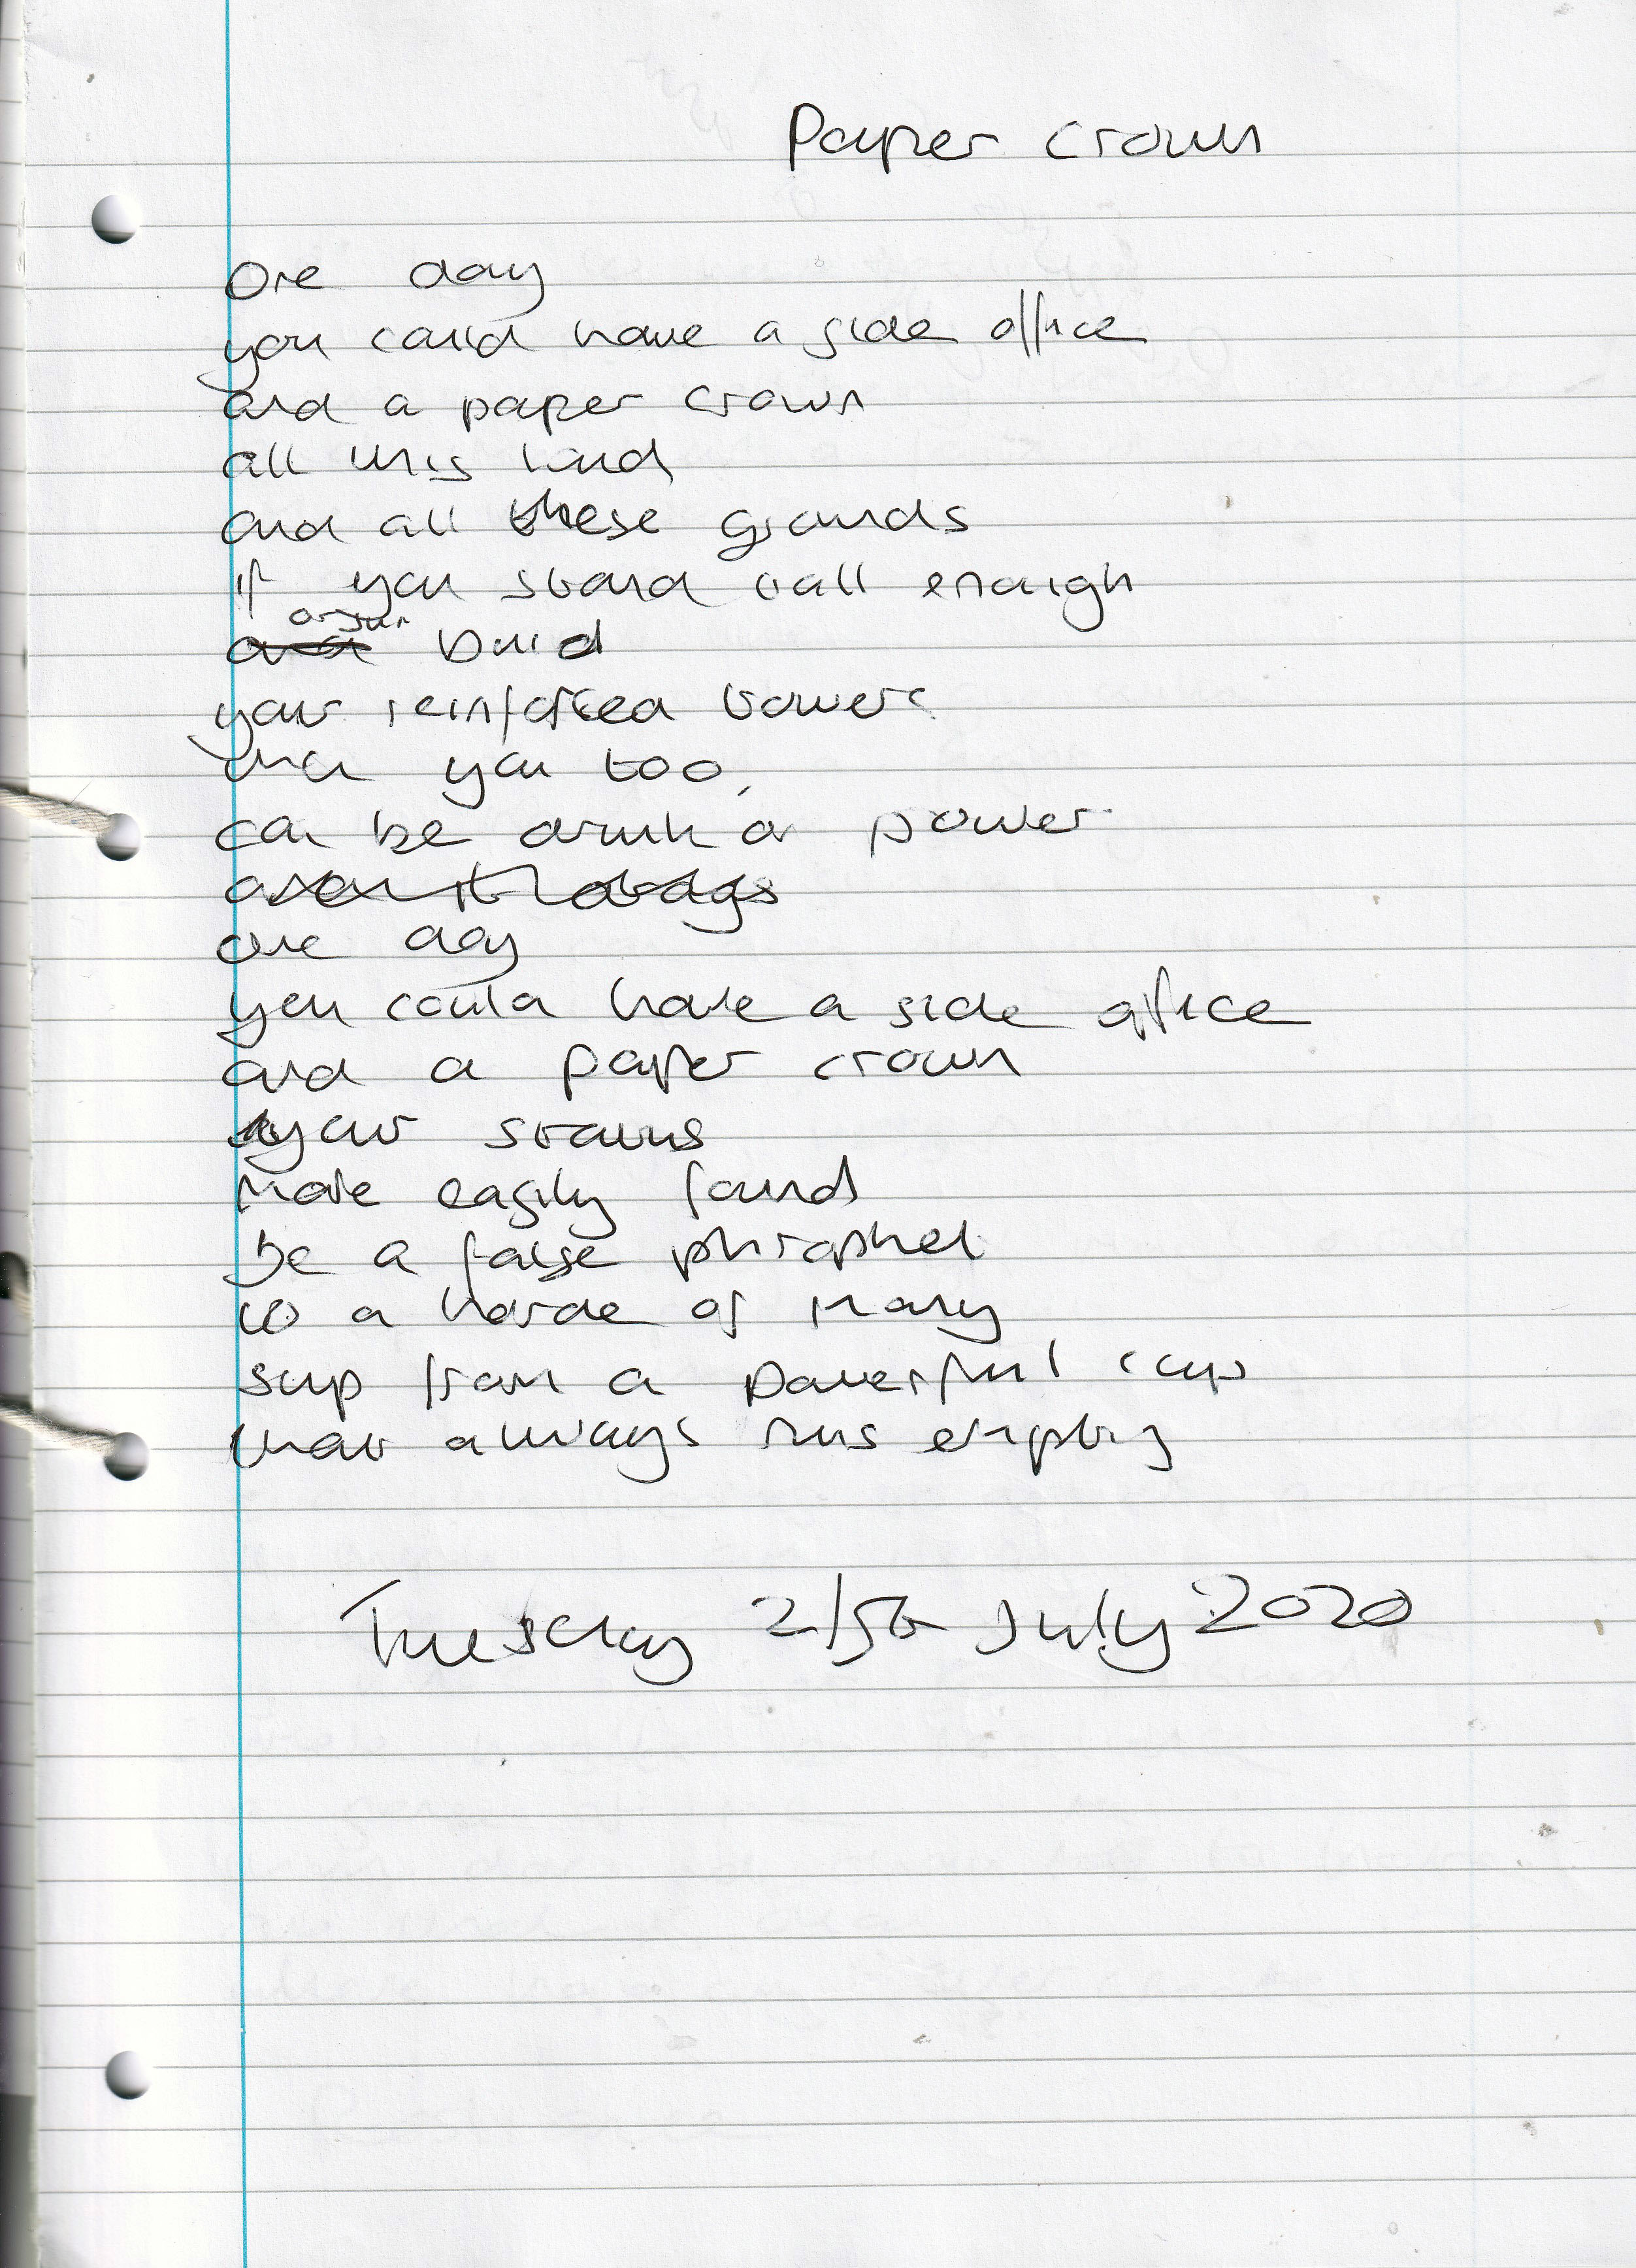 Paper crown
One day
you could have a side office
and a paper crown
all this land
and all these grounds
if you stand tall enough
build
your reinforced towers
then you too,
can be drunk on power
one day
you could have a side office
and a paper crown
your status
more easily found
be a false phrophet
to a horde of many
sup from a powerful cup
that always runs empty
Tuesday 21st July 2020